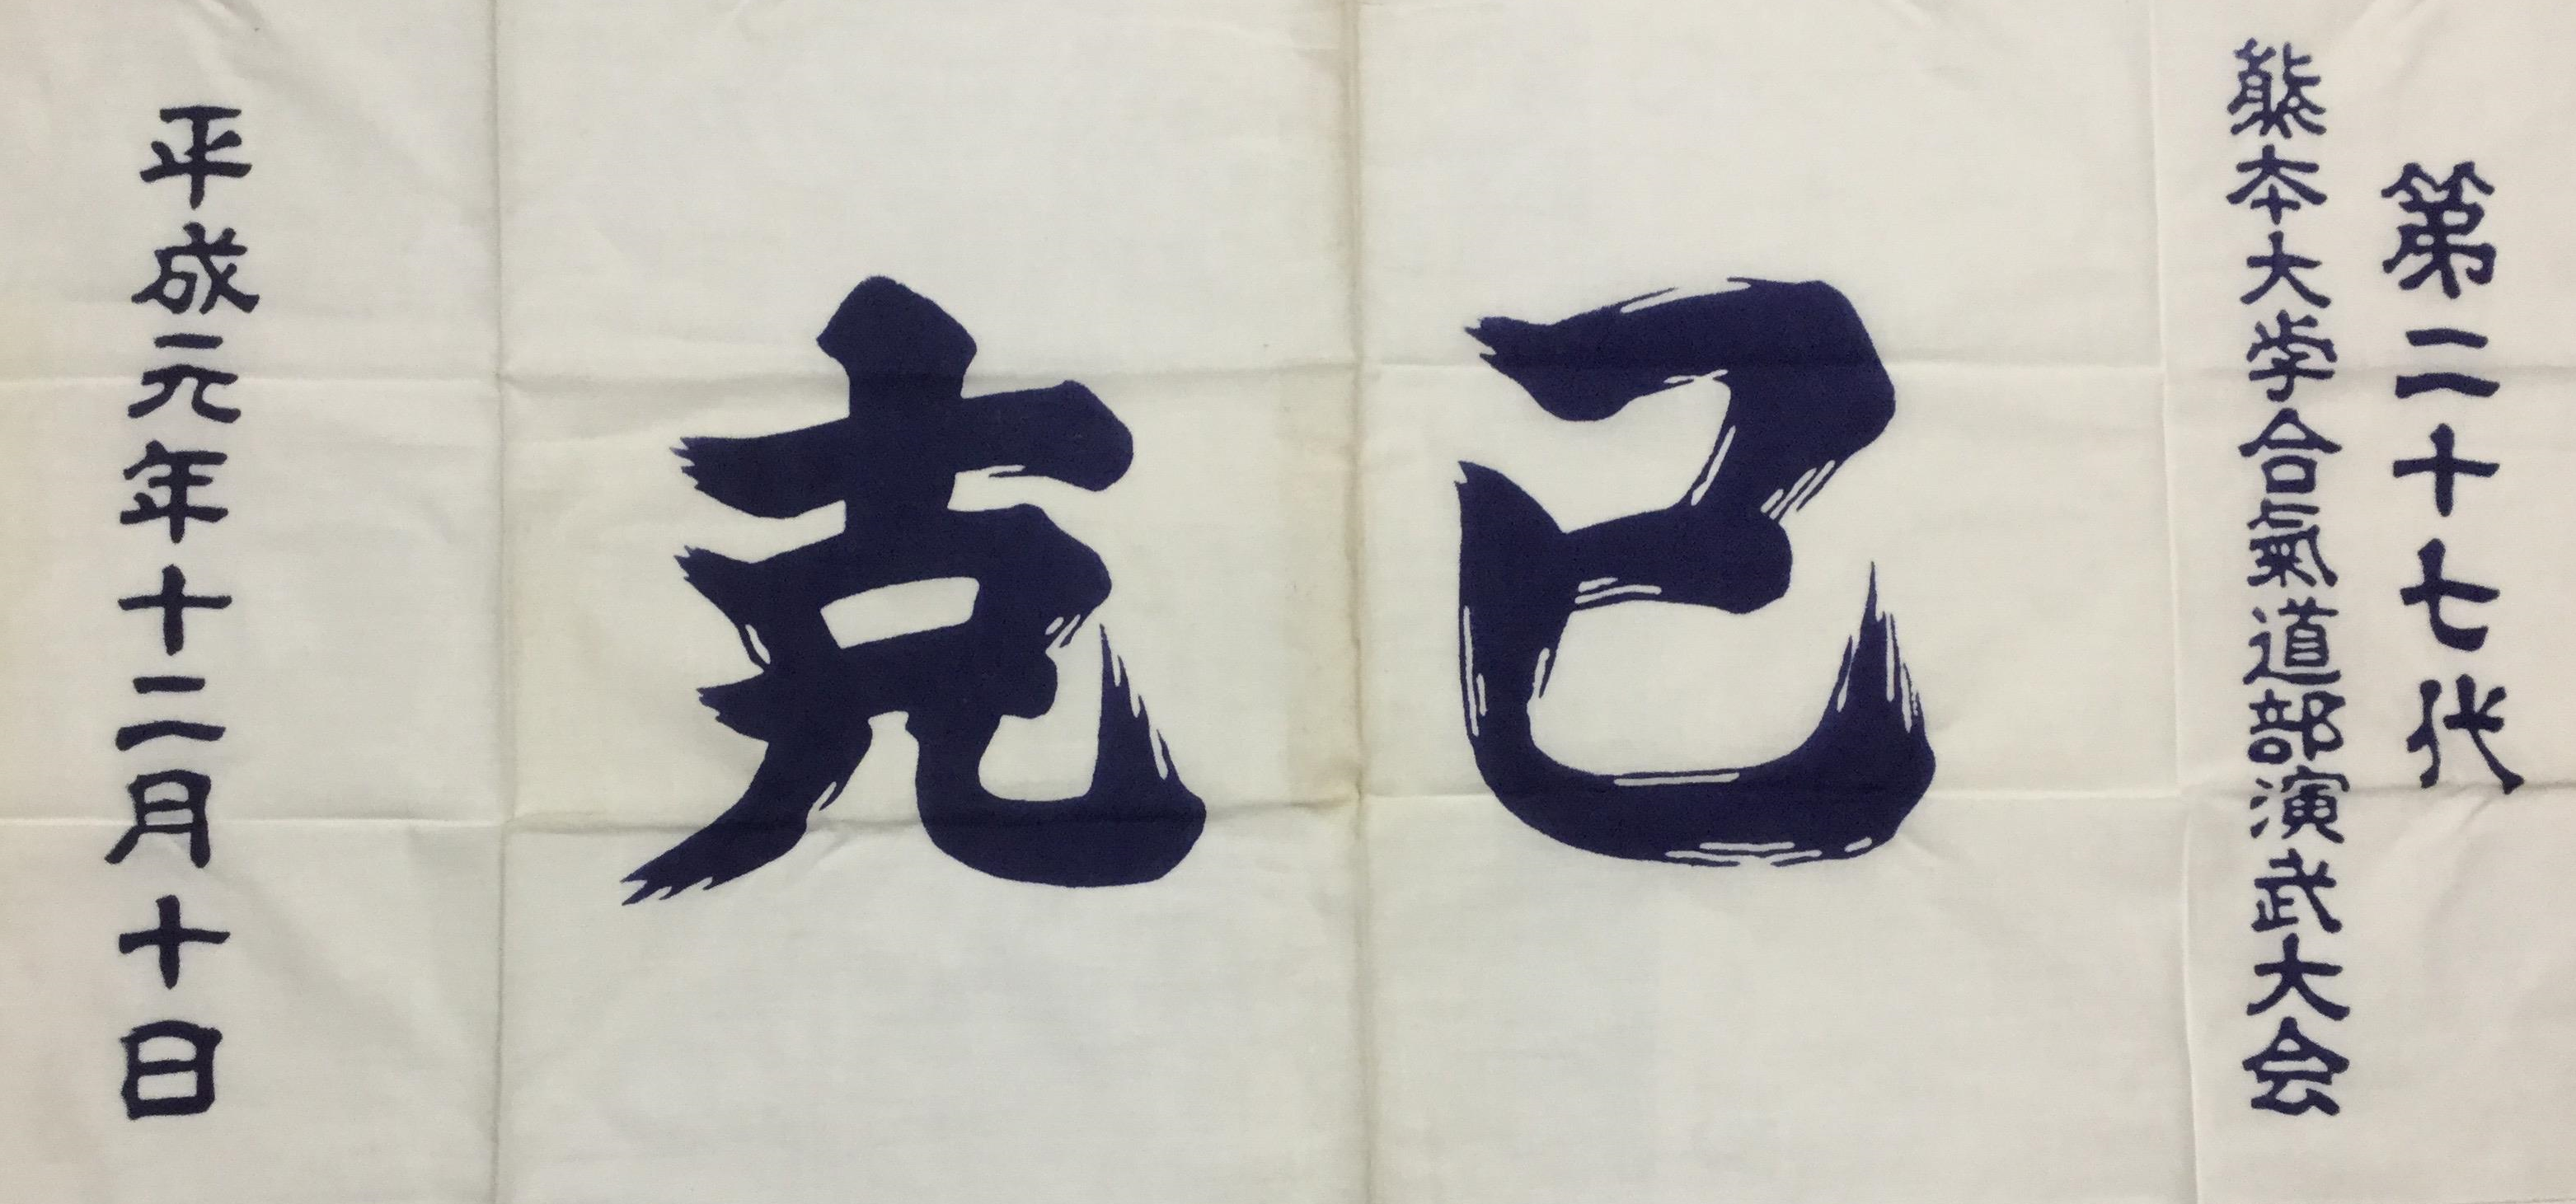 第二十七代
熊本大学合氣道部演武大会
己克
平成元年十二月十日